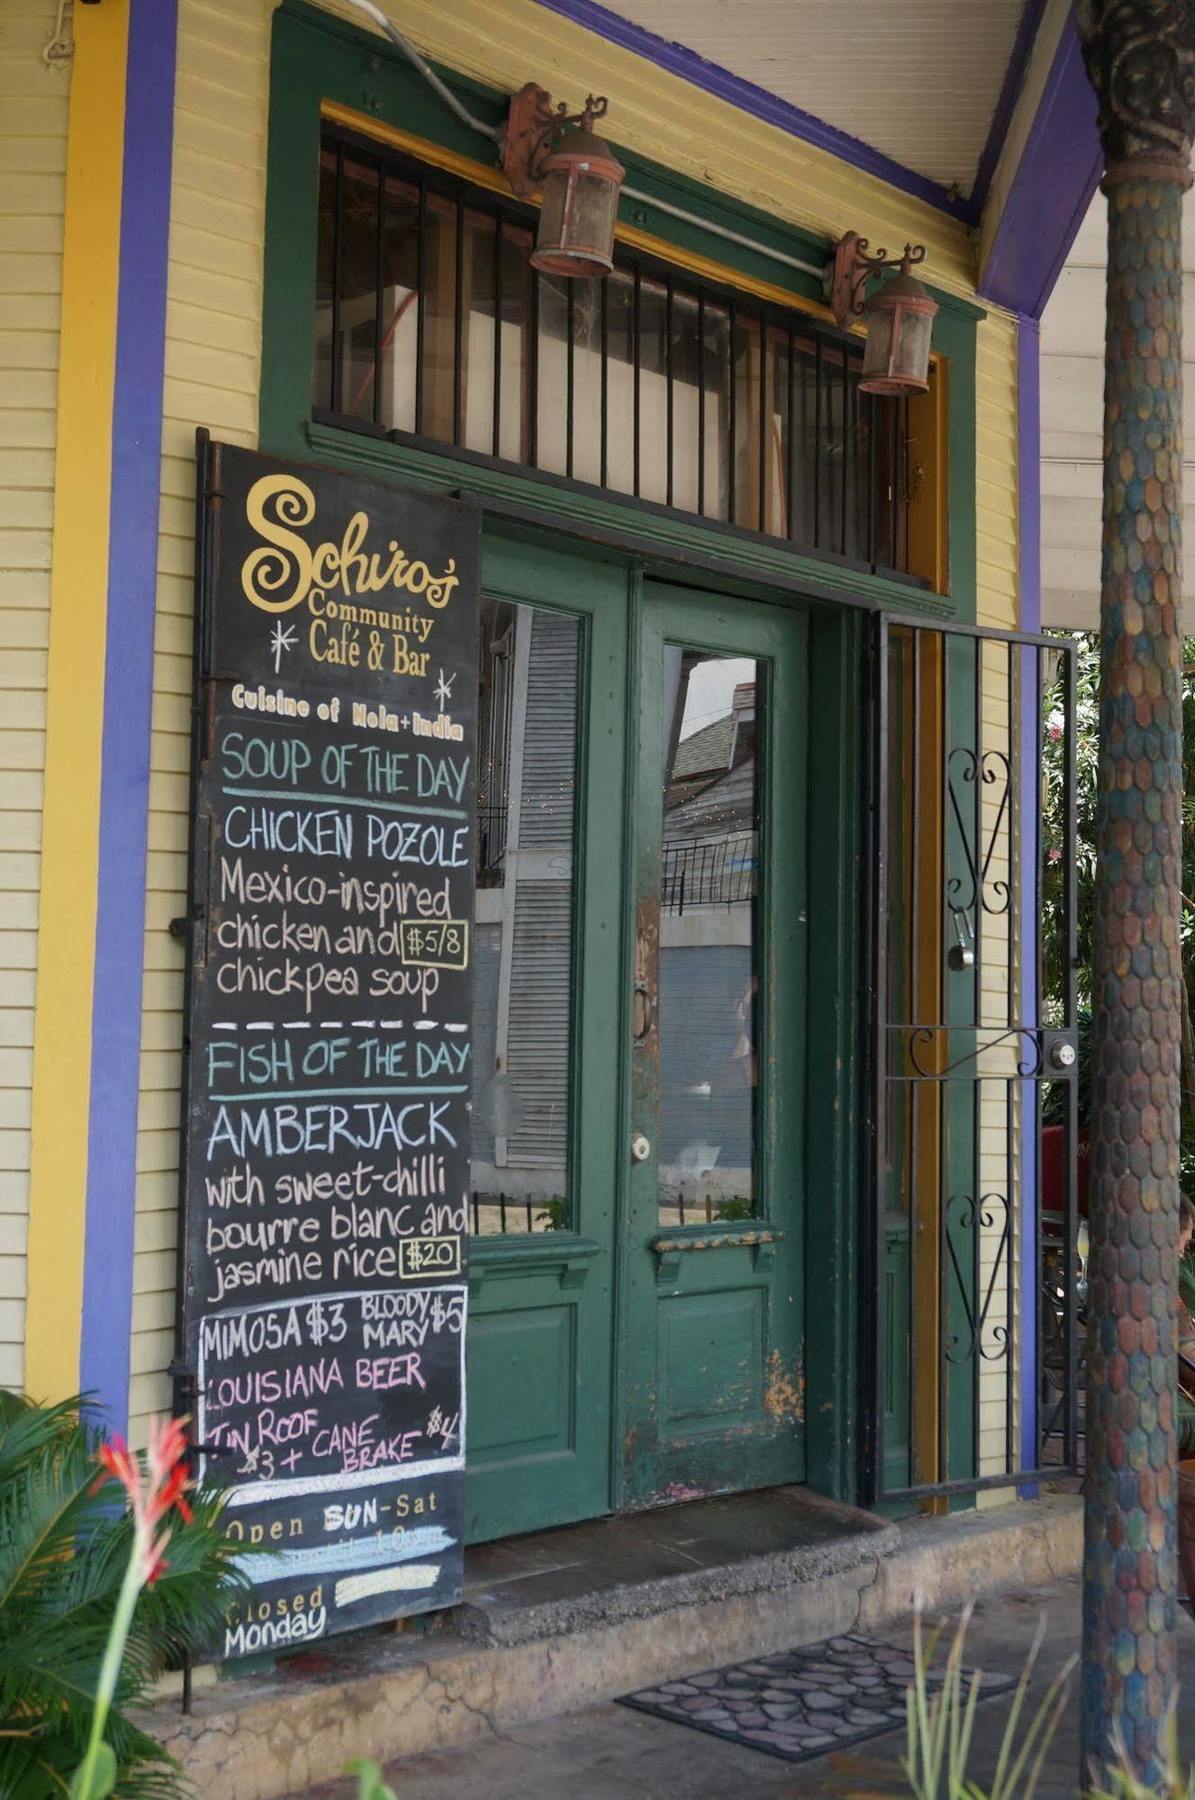 Schiro's
Community
Café & Bar
Cuisine of Nola + India
SOUP OF THE DAY
CHICKEN POZOLE
Mexico-inspired
chicken and $5/8
chickpea soup
FISH OF THE DAY
AMBERJACK
with sweet-chilli
bourre blanc and
jasmine rice $20
MIMOSA $3 BLOODY MARY $5
LOUISIANA BEER
TIN ROOF $3 + CANE BRAKE $4
Open SUN-Sat
Closed
Monday